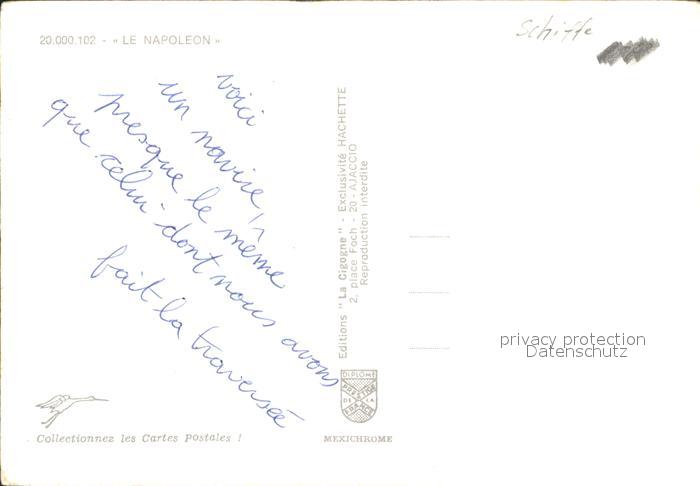 20.000.102 - « LE NAPOLEON »
Schiffe
voici
un navire,
presque le même
que celui dont nous avons
fait la traversée
Editions "La Cigogne" - Exclusivité HACHETTE
2, place Foch - 20 - AJACCIO
Reproduction interdite
privacy protection
Datenschutz
DIPLOME
PRESTIGE
DE LA
FRANCE
Collectionnez les Cartes Postales !
MEXICHROME